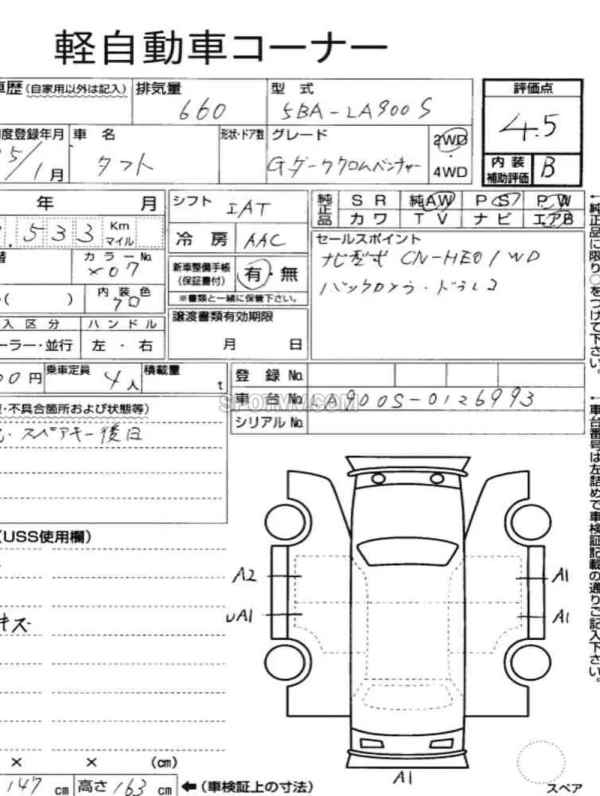 軽自動車コーナー
車歴 (自家用以外は記入) 排気量 型式 評価点
660 5BA-LA900S 4.5
度登録年月 車名 形状・ドア数 グレード 2WD
5/1月 タフト Gダーククロムベンチャー ・4WD
内装補助評価 B
年 月 シフト IAT 純正品 SR 純AW PS PW
カワ TV ナビ エアB
533 Km マイル 冷房 AAC セールスポイント
替 カラーNo. X07 新車整備手帳 (保証書付) 有・無 ナビ型式 CN-HE01WD
( ) 内装色 クロ ※書類と一緒に保管下さい。 バックカメラ・ドラレコ
入区分 ハンドル 譲渡書類有効期限
ーラー・並行 左・右 月 日
00円 乗車定員 4人 積載量 t 登録No.
車台No. LA900S-0126993
シリアルNo.
・不具合箇所および状態等)
スペアキー後日
(USS使用欄)
A2 A1
UA1 A1
キズ
× × (cm)
147 cm 高さ 163 cm ←(車検証上の寸法)
A1
スペア
←純正品に限り○をつけて下さい。
←車台番号は左詰めで車検証記載の通りご記入下さい。
SPOTVIV.COM